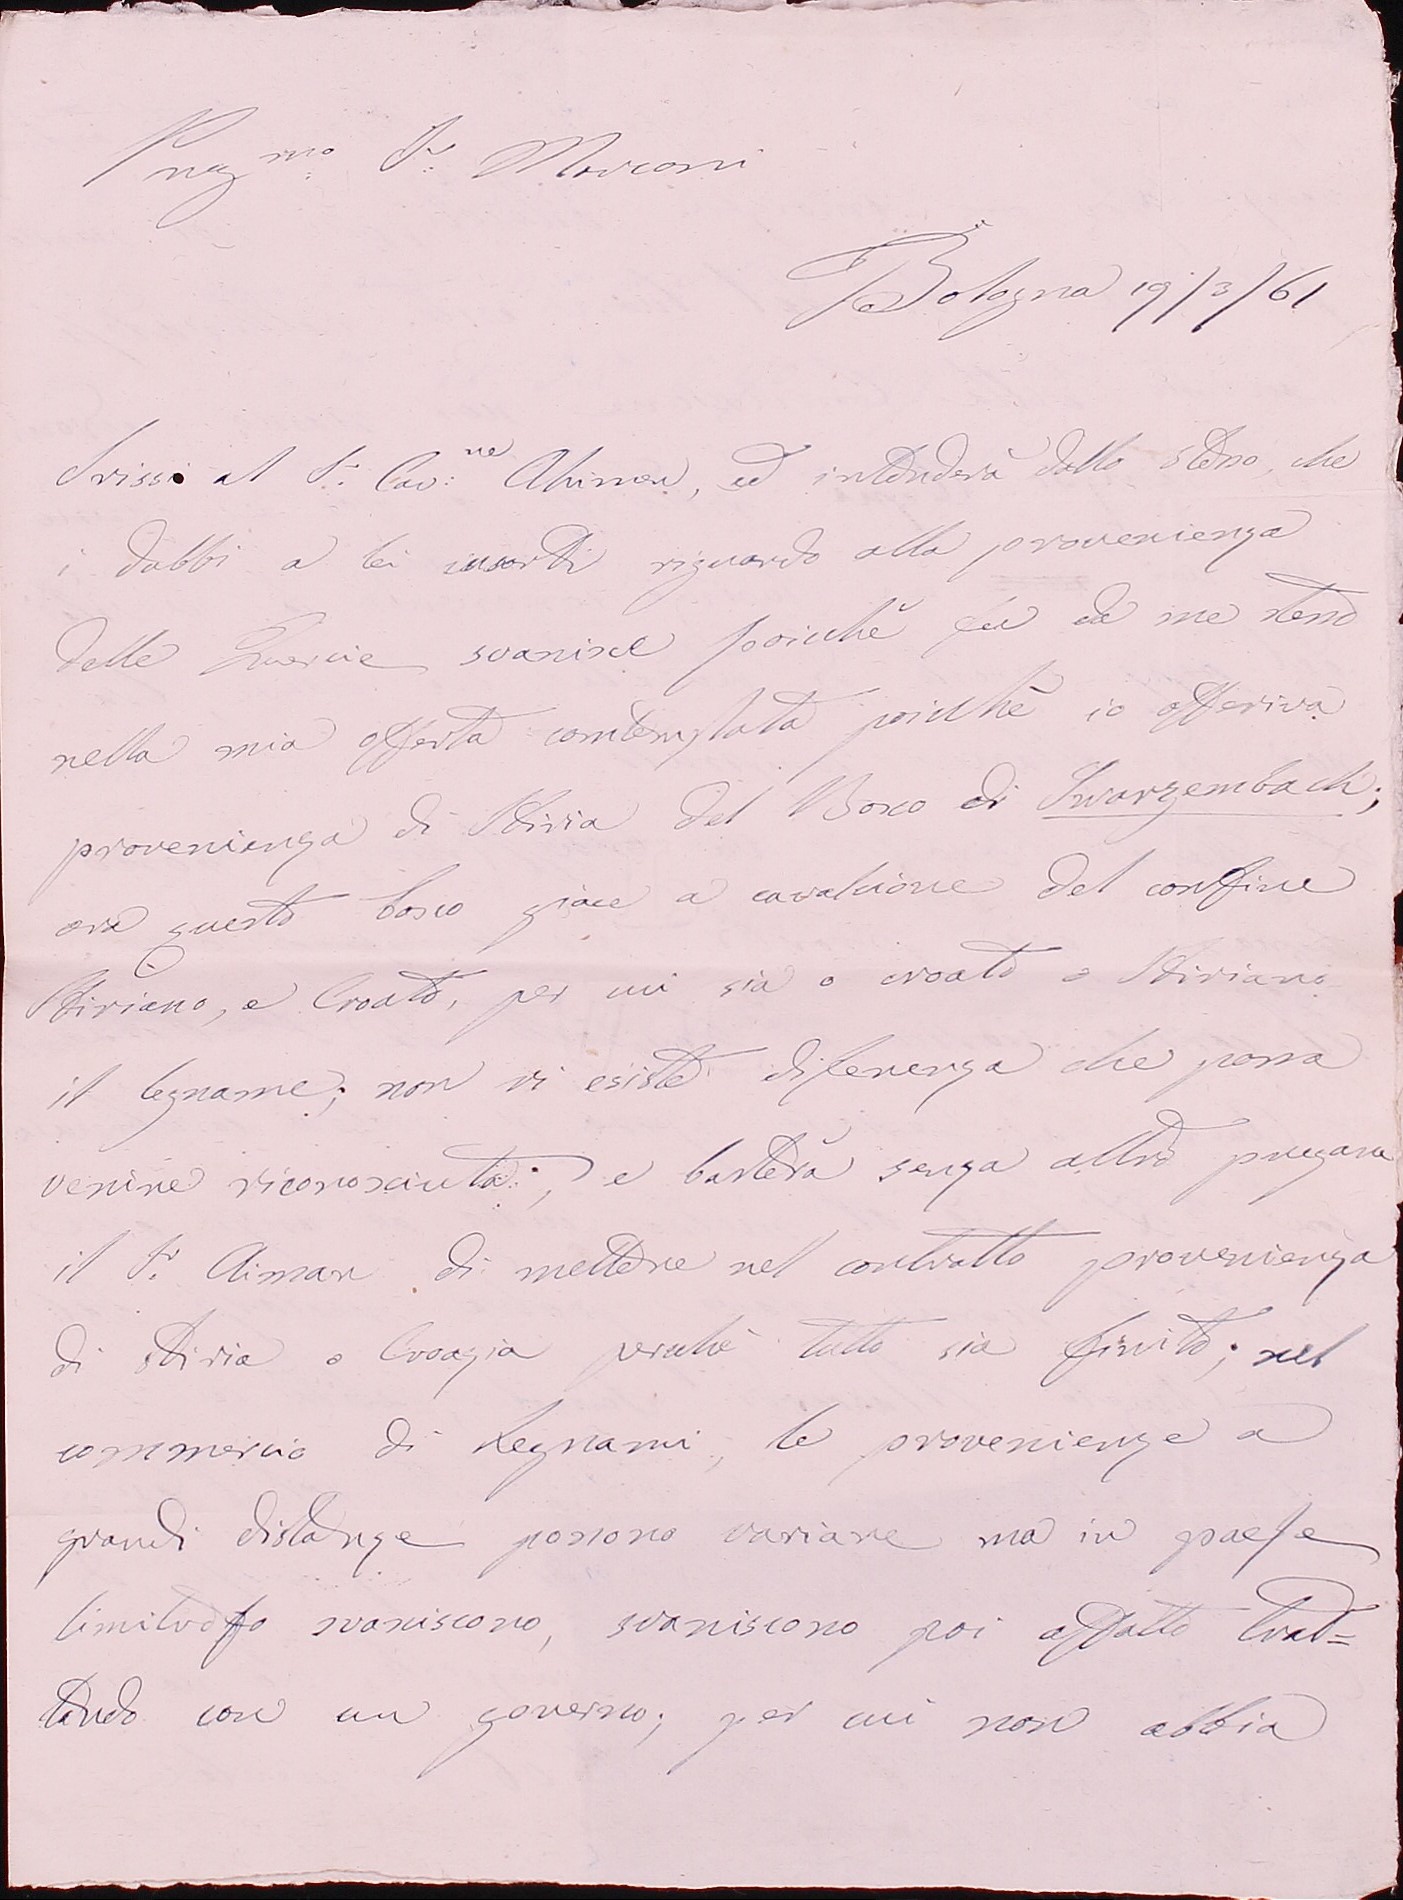 Preg.mo Sr. Marconi
Bologna 19/3/61
Scrissi al Sr. Cav:ne Ahiman, ed intenderà dallo stesso, che
i dubbi a lei insorti riguardo alla provenienza
delle Quercie svanisce poicchè fu da me stesso
nella mia offerta contemplata poicchè io offeriva
provenienza di Stiria del Bosco di Swarzembach;
ora questo bosco giace a cavalcione del confine
Stiriano, e Croato, per cui sia o croato o Stiriano
il legname; non vi esiste diferenza che possa
venire riconosciuta; e basterà senza altro pregare
il Sr. Aiman di mettere nel contratto provenienza
di Stiria o Croazia perchè tutto sia finito; nel
commercio di Legnami, le provenienze a
grandi distanze possono variare ma in paese
limitrofo svaniscono, svaniscono poi affatto trat=
tando con un governo; per cui non abbia